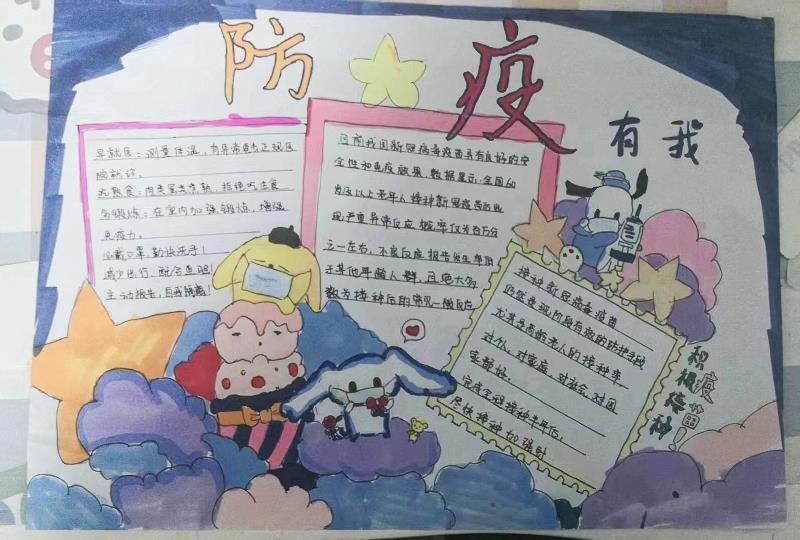 防疫
有我
早就医：测量体温，有异常直去正规医
院就诊。
大熟食：肉类蛋类煮熟，拒绝吃生食
多锻炼：在室内加强锻炼，增强
免疫力。
必戴口罩，勤快洗手！
减少出行，配合查项！
主动报告，自我隔离！
目前我国新冠病毒疫苗具有良好的安
全性和免疫效果，数据显示：全国60
岁及以上老年人接种新冠疫苗后出
现严重异常反应概率仅为百万分
之一左右，不良反应报告发生率低
于其他年龄人群，且绝大多
数为接种后的常见一般反应
接种新冠病毒疫苗
仍然是现阶段有效的防护手段
尤其是高龄老人的接种率
对你，对家庭，对社会，对国
家都好。
完成全程接种半年后，
尽快接种加强针
积极接种
疫苗！